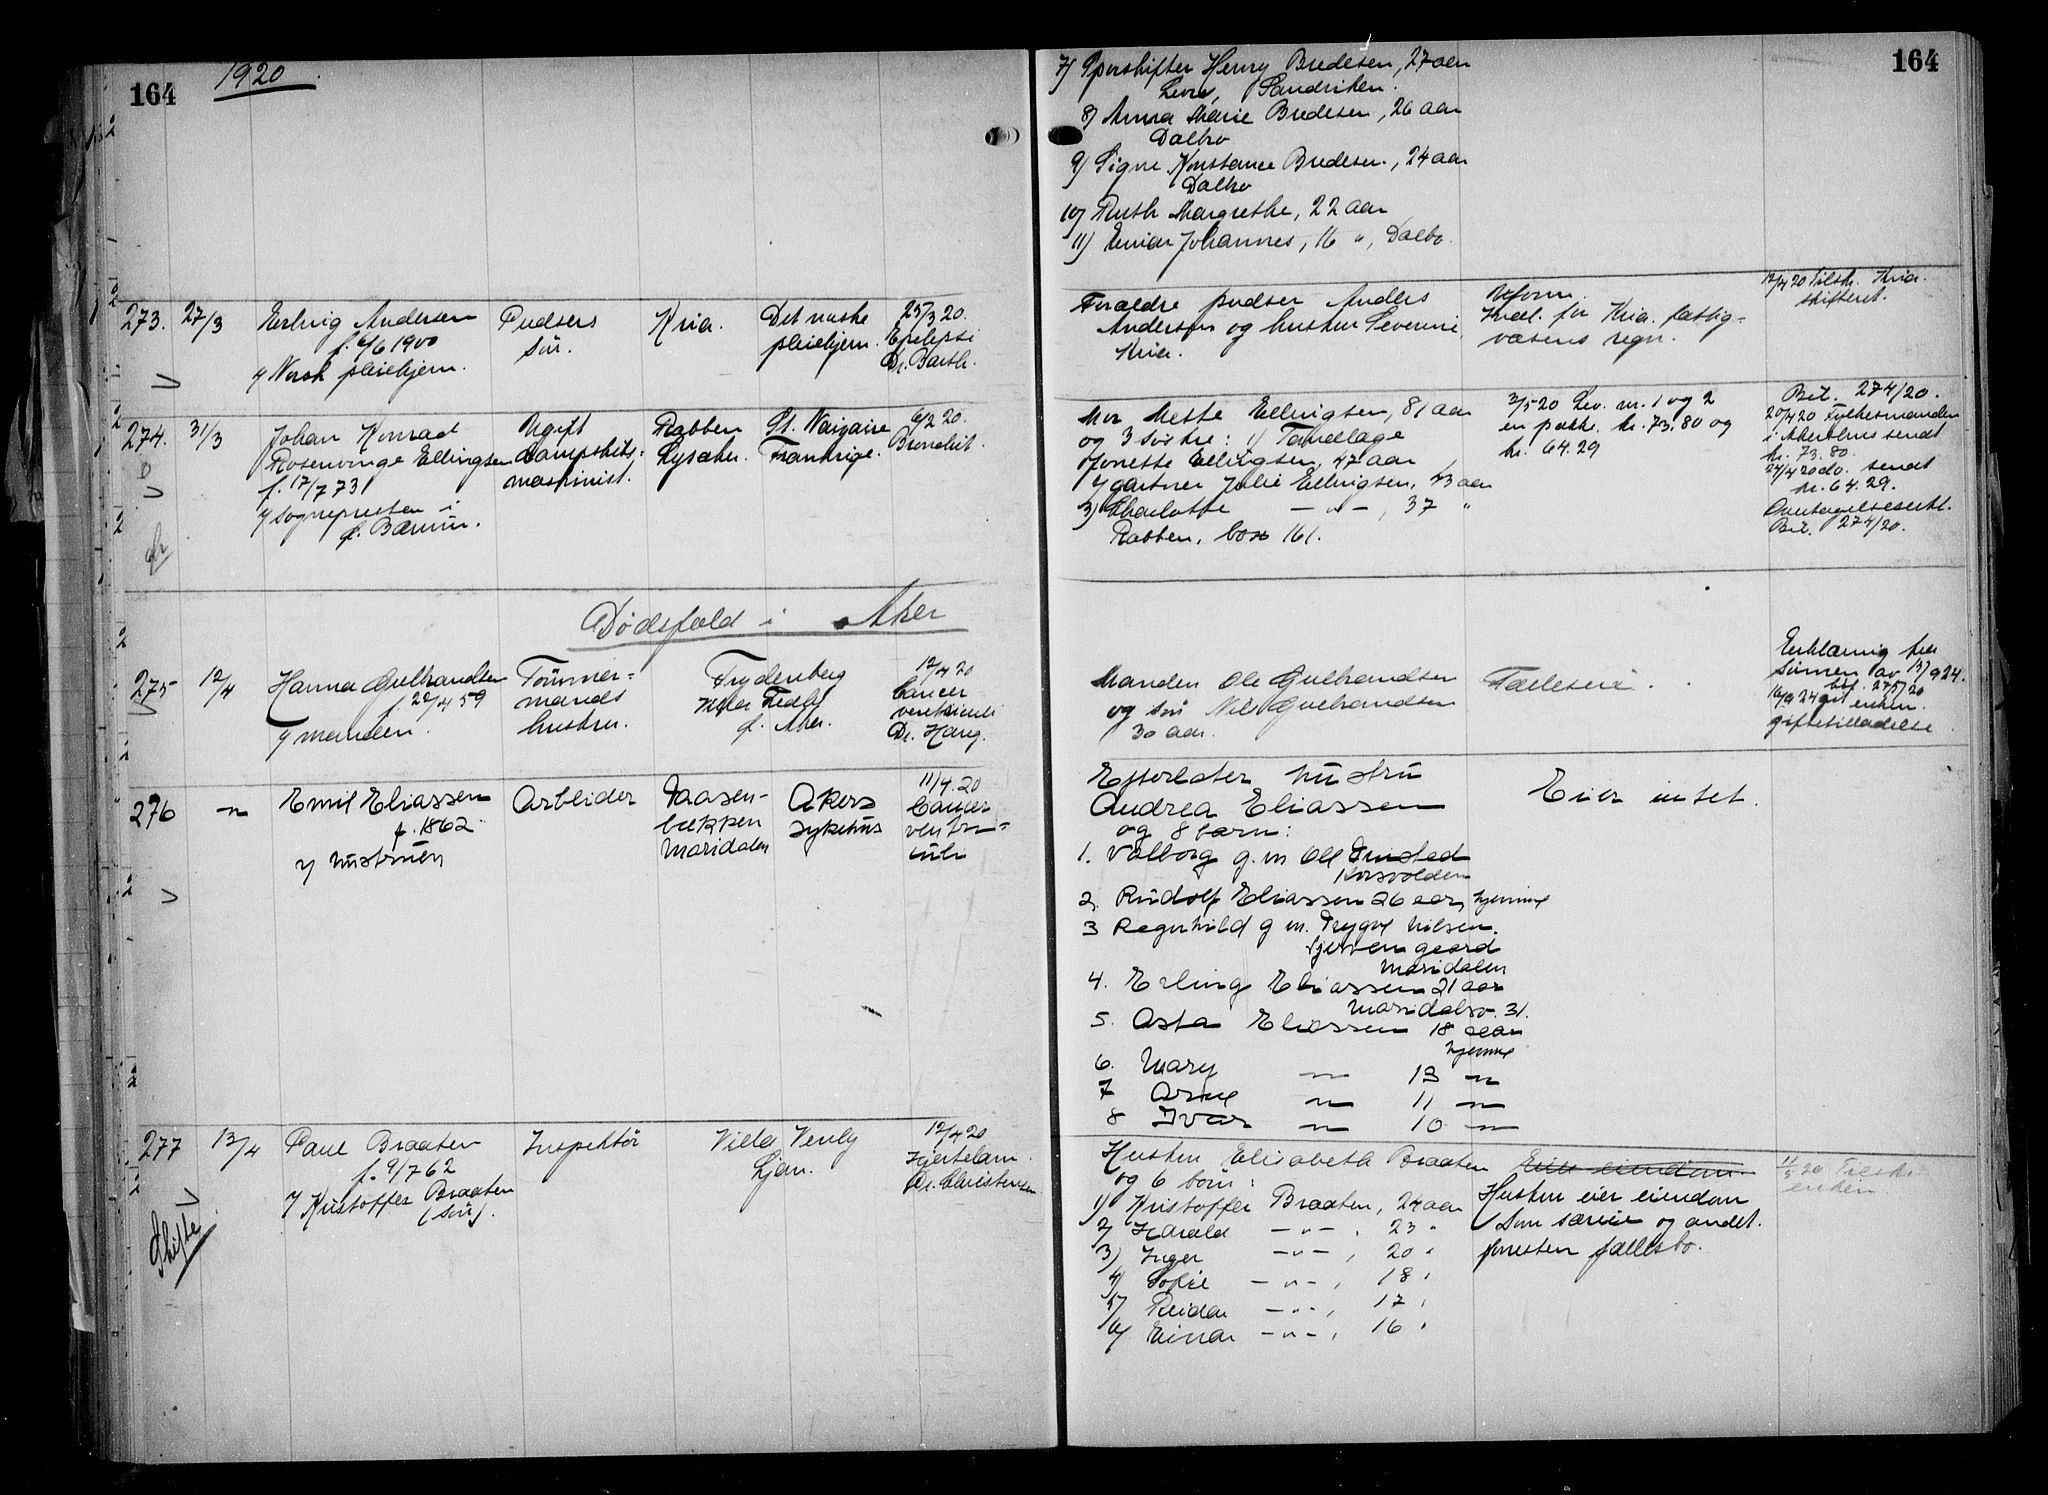 164
1920
273. 27/3
Erling Andersen
f. 6/6 1900
Norsk pleiehjem.
Pudsers
søn.
Kria.
Det norske
pleiehjem.
25/3 20.
Epilepsi
Dr. Barth.
274. 31/3
Johan Konrad
Rosenvinge Ellingsen
f. 17/7 73
v/ sognepresten i
Bærum.
Ugift
dampskibs-
maskinist.
Rabben
Lysaker.
St. Naizaire
Frankrige.
6/2 20.
Bronchit.
Dødsfald i Aker
275 12/4
Hanna Gulbrandsen
f. 22/4 59
v/ manden.
Tømmer-
mands
hustru.
Frydenberg
f. Aker.
12/4 20
Cancer
ventriculi
Dr. Haug.
276 "
Emil Eliassen
f. 1862
v/ hustruen
Arbeider
Taasen-
bækken
Maridalen
Akers
sykehus
11/4 20
Cancer
ventri-
culi
277 13/4
Paul Braaten
f. 9/7 62
v/ Kristoffer Braaten
(søn).
Skifte
Inspektør
Villa Venly
Ljan.
12/4 20
Hjertelam.
Dr. Christensen
164
7) Sporskifter Henry Bredesen, 27 aar
Sandviken.
8) Anna Marie Bredesen, 26 aar
Dalbo
9) Signe Konstance Bredesen, 24 aar
Dalbo
10) Ruth Margrethe, 22 aar
11) Einar Johannes, 16 ", Dalbo.
Forældre pudser Anders
Andersen og hustru Severine,
Kria.
Uform.
Indl. for Kria. fattig-
væsens regn.
12/4 20 Tilsk. Kria.
skifteret.
Mor Mette Ellingsen, 81 aar
og 3 søstre: 1) Tandlæge
Jonette Ellingsen, 47 aar
2) gartner Julie Ellingsen, 43 aar
3) Charlotte — " — , 37 "
Rabben, box 161.
3/5 20 Lev. nr. 1 og 2
en pakke. kr. 73.80 og
kr. 64.29
Bil. 274/20.
20/4 20 Folkesmanden
i Akershus sendt
kr. 73.80.
24/4 20 do. sendt
kr. 64.29.
Bil. 274/20.
Manden Ole Gulbrandsen
og søn Nils Gulbrandsen
30 aar.
Fælleseie.
Erklæring fra
sønnen av 13/9 24.
bil. 275/20
16/9 24 git enkem.
giftetilladelse
Efterlater hustru
Andrea Eliassen
og 8 barn:
1. Valborg g. m Ole
Korsvolden
2. Rudolf Eliassen 26 aar, hjemme
3 Ragnhild g m. Trygve Nilsen.
Maridalen
4. Erling Eliassen 21 aar
Maridalsv. 31.
5. Asta Eliassen 18 aar
hjemme
6. Mary " 13 "
7 Arne " 11 "
8 Ivar " 10 "
Eier intet.
Hustru Elisabeth Braaten
og 6 børn:
1) Kristoffer Braaten, 24 aar
2) Harald — " — , 23 "
3) Inger — " — , 20 "
4) Sofie — " — , 18 "
5) Reidar — " — , 17 "
6) Einar — " — , 16 "
Eier eiendom.
Hustru eier eiendom
som særeie og andet.
forresten fællesbo.
11/5 20 Tilsk.
enken.